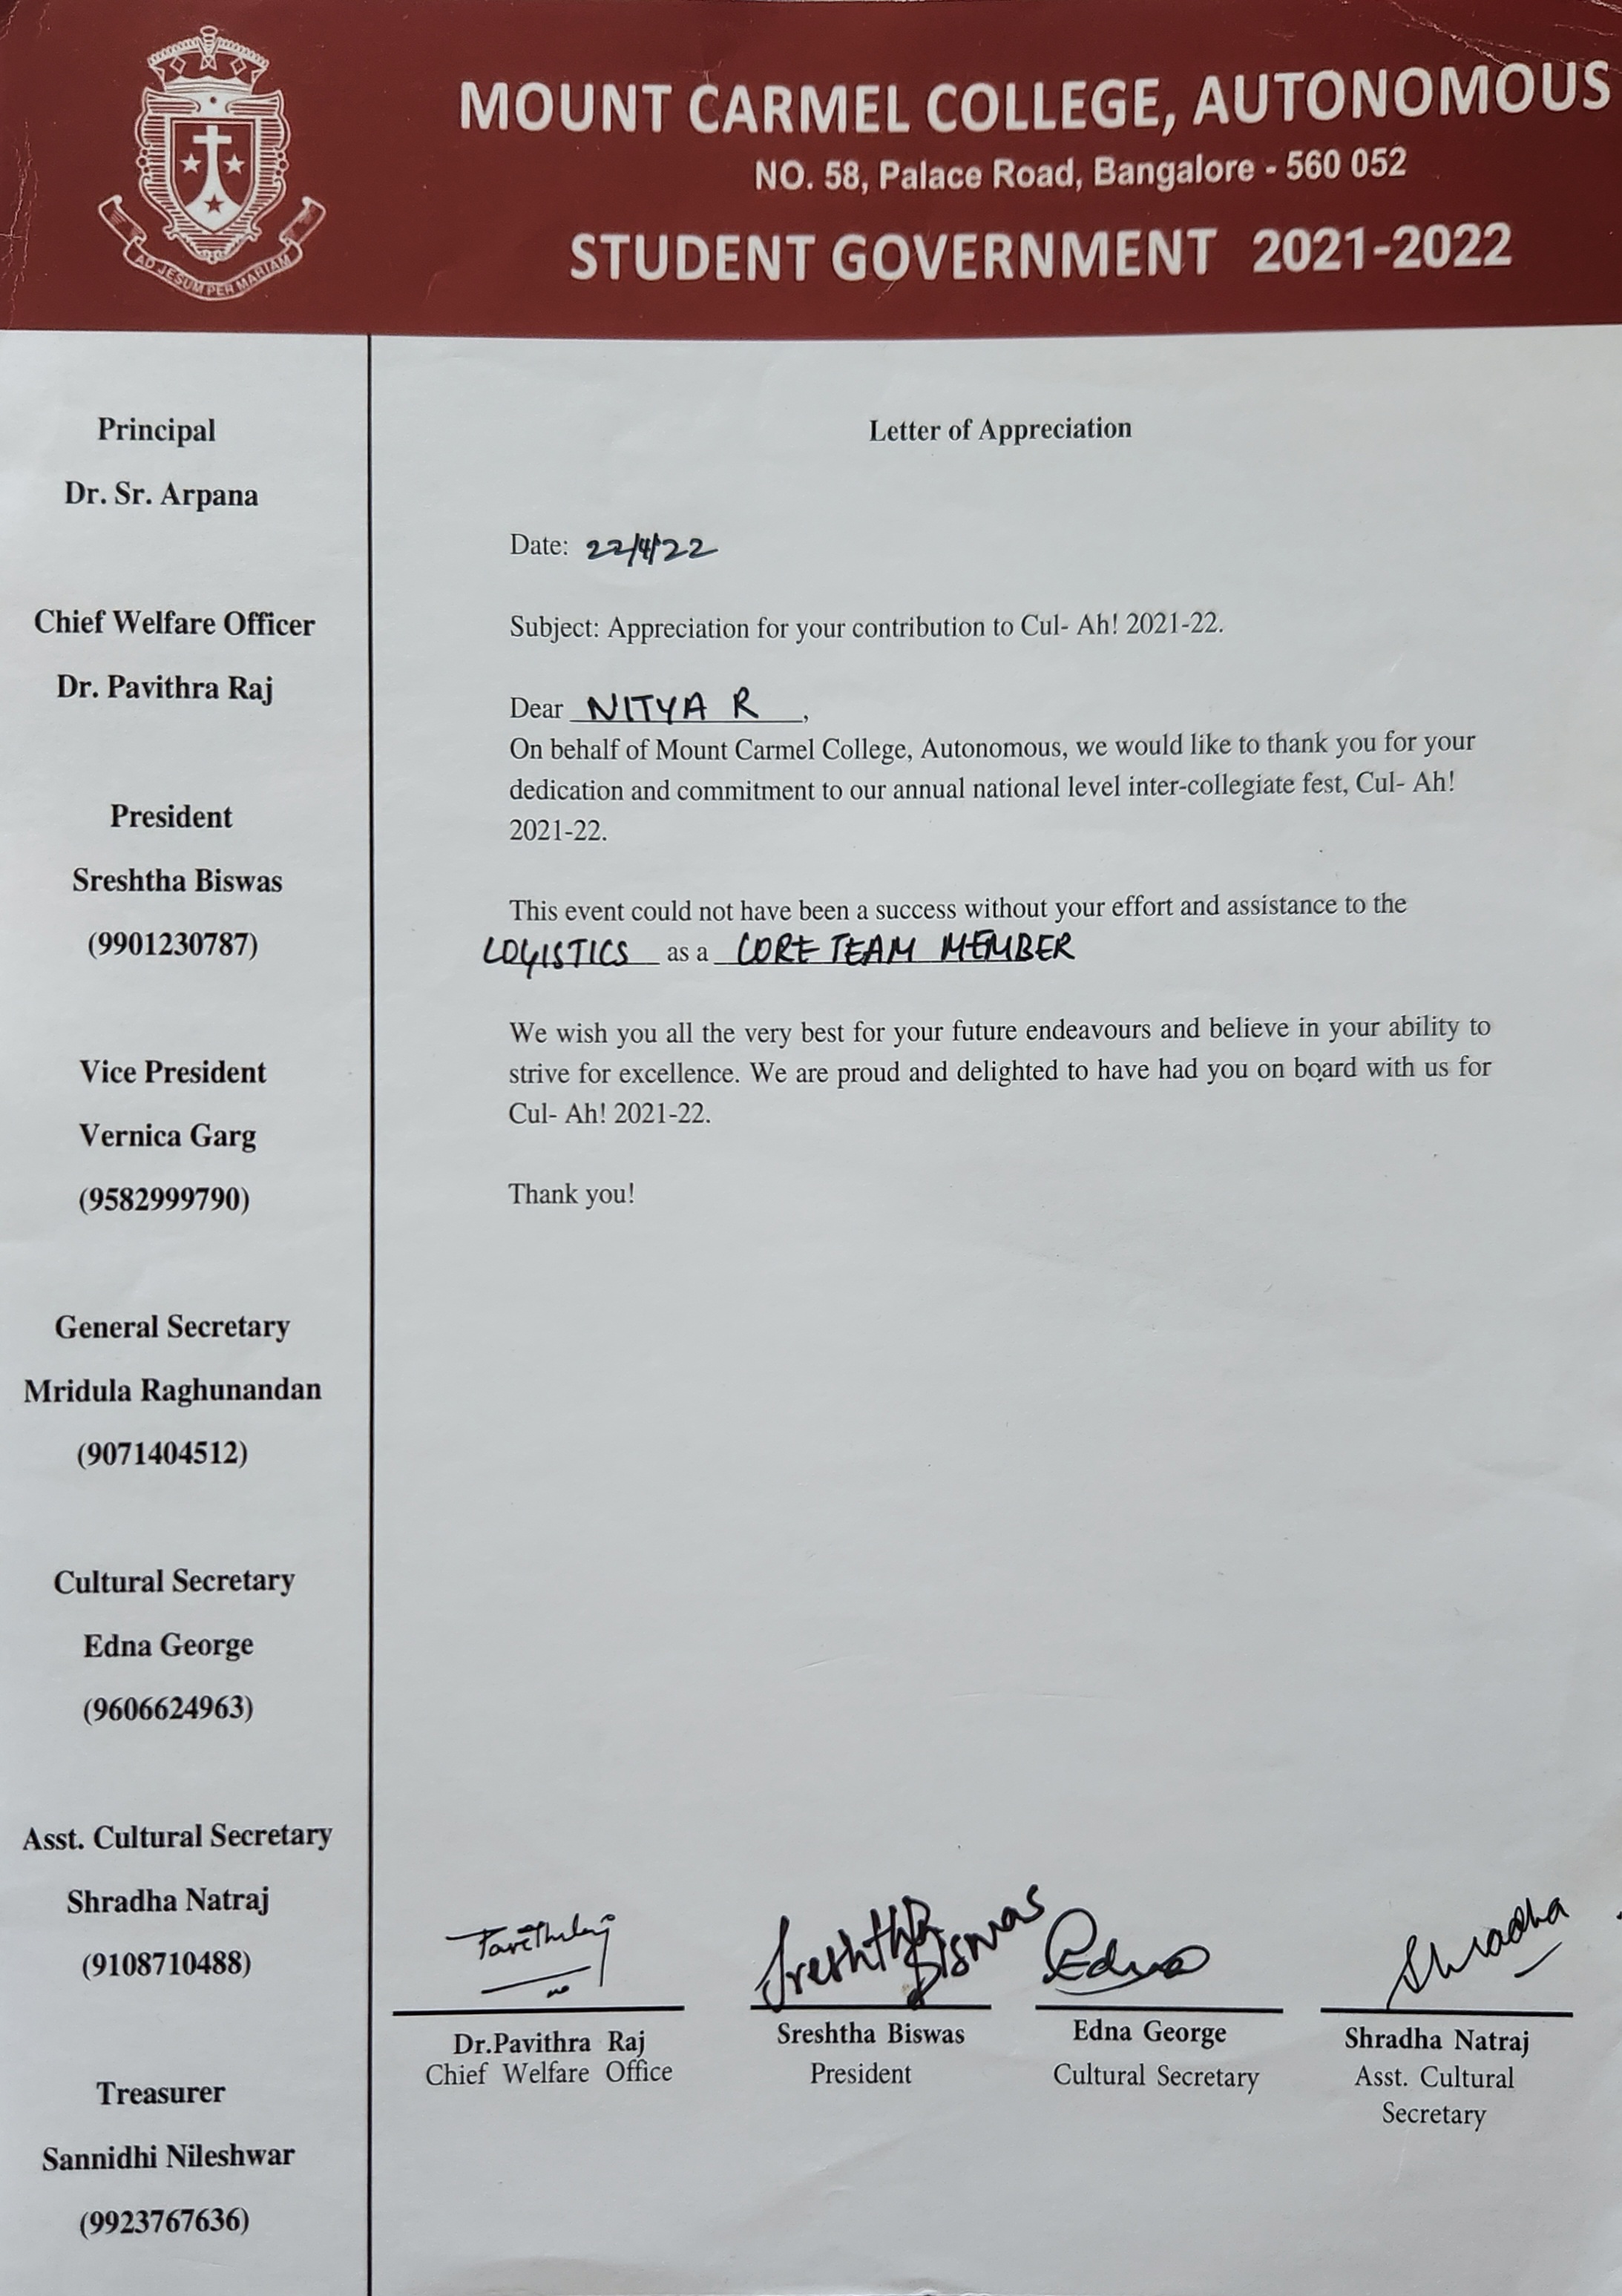 MOUNT CARMEL COLLEGE, AUTONOMOUS
NO. 58, Palace Road, Bangalore - 560 052
STUDENT GOVERNMENT 2021-2022
AD JESUM PER MARIAM
Principal
Dr. Sr. Arpana
Chief Welfare Officer
Dr. Pavithra Raj
President
Sreshtha Biswas
(9901230787)
Vice President
Vernica Garg
(9582999790)
General Secretary
Mridula Raghunandan
(9071404512)
Cultural Secretary
Edna George
(9606624963)
Asst. Cultural Secretary
Shradha Natraj
(9108710488)
Treasurer
Sannidhi Nileshwar
(9923767636)
Letter of Appreciation
Date: 22/4/22
Subject: Appreciation for your contribution to Cul- Ah! 2021-22.
Dear NITYA R,
On behalf of Mount Carmel College, Autonomous, we would like to thank you for your
dedication and commitment to our annual national level inter-collegiate fest, Cul- Ah!
2021-22.
This event could not have been a success without your effort and assistance to the
LOGISTICS as a CORE TEAM MEMBER
We wish you all the very best for your future endeavours and believe in your ability to
strive for excellence. We are proud and delighted to have had you on board with us for
Cul- Ah! 2021-22.
Thank you!
Sreshtha Biswas
Edna
Shradha
Dr.Pavithra Raj
Chief Welfare Office
Sreshtha Biswas
President
Edna George
Cultural Secretary
Shradha Natraj
Asst. Cultural
Secretary